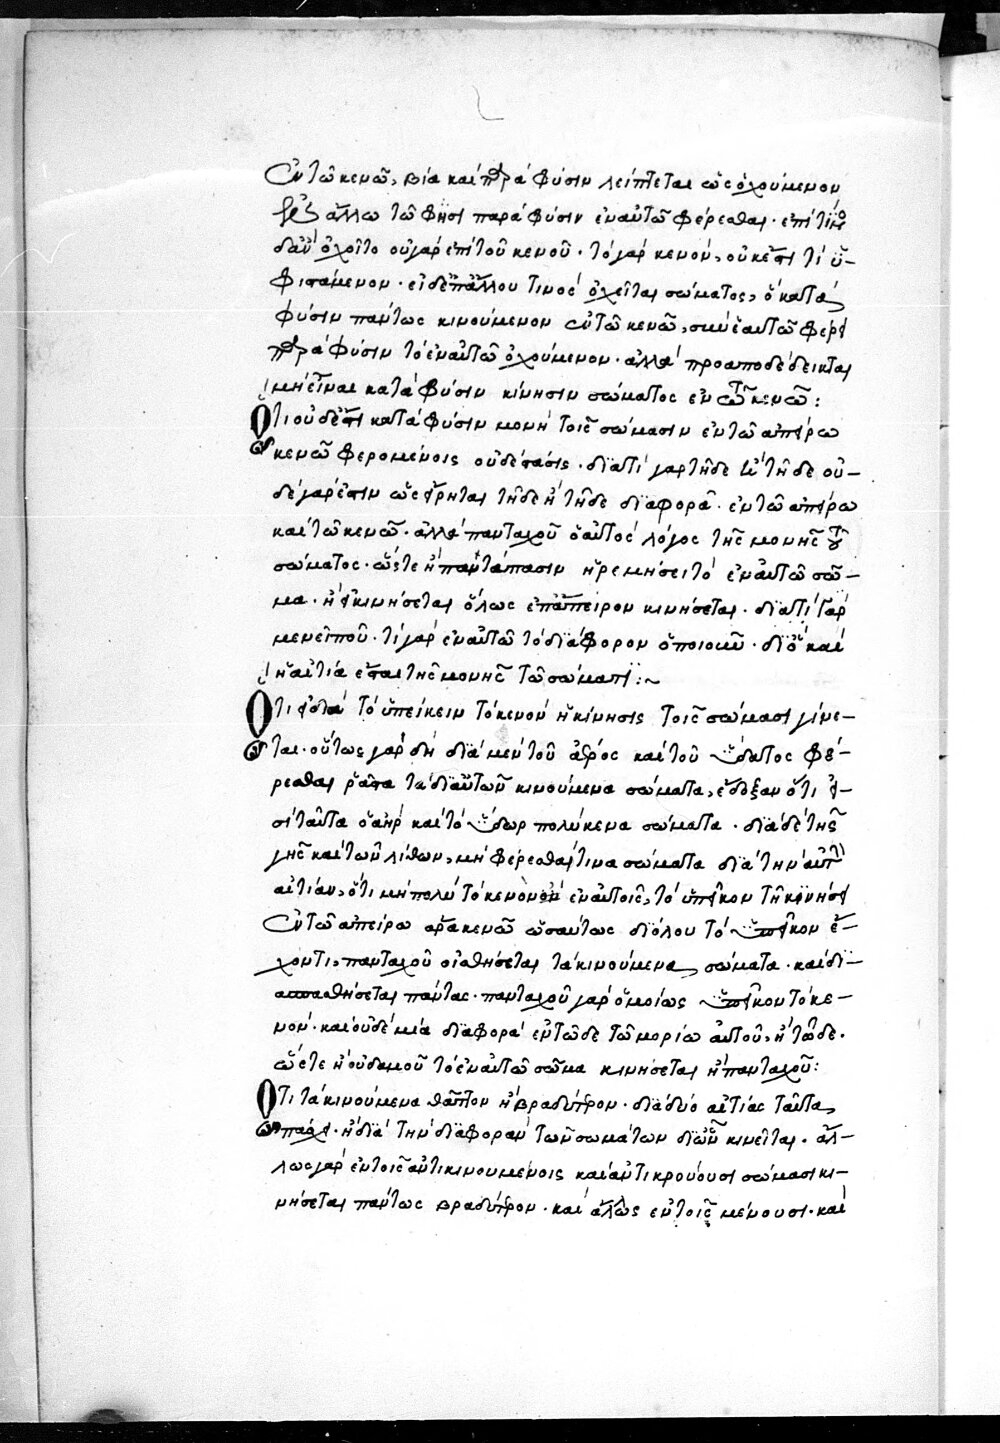 ἐν τῷ κενῷ, βία καὶ παρὰ φύσιν λείπεται ὡς ὀχούμενον
ἄλλω τῷ φύσει παρὰ φύσιν ἐν αὐτῷ φέρεσθαι· ἐπὶ τίνος
δ' ἂν ὀχοῖτο οὐ γὰρ ἐπὶ τοῦ κενοῦ· τὸ γὰρ κενὸν, οὐκ ἔστι τὶ ὑ-
φιστάμενον· εἰ δὲ ἐπ' ἄλλου τινος ὀχεῖται σώματος, ὃ κατὰ
φύσιν πάντως κινούμενον ἐν τῷ κενῷ, σὺν ἑαυτῷ φέρει
παρὰ φύσιν τὸ ἐν αὐτῷ ὀχούμενον· ἀλλὰ προαποδέδεικται
μὴ εἶναι κατὰ φύσιν κίνησιν σώματος ἐν τῷ κενῷ:
Ὅτι οὐδ' ἔστι κατὰ φύσιν μονὴ τοῖς σώμασιν ἐν τῷ ἀπείρω
κενῷ φερομένοις οὐδὲ στάσις· διατὶ γὰρ τῇδε ἢ τῇδε οὐ-
δὲ γὰρ ἔστιν ὡς εἴρηται τῇδε ἢ τῇδε διαφορὰ· ἐν τῷ ἀπείρω
καὶ τῷ κενῷ· ἀλλὰ πανταχοῦ ὁ αὐτὸς λόγος τῆς μονῆς τοῦ
σώματος· ὥστε ἢ παντάπασιν ἠρεμήσει τὸ ἐν αὐτῷ σῶ-
μα· ἢ εἰ κινήσεται ὅλως ἐπ' ἄπειρον κινήσεται· διατὶ γὰρ
μενεῖ ποῦ· τί γὰρ ἐν αὐτῷ τὸ διάφορον ὁποιοῦν· διὸ καὶ
ἡ αἰτία ἔσται τῆς μονῆς τῷ σώματι:~
Ὅτι εἰ διὰ τὸ ὑπείκειν τὸ κενὸν ἡ κίνησις τοῖς σώμασι γίνε-
ται· οὕτως γὰρ δὴ διὰ μὲν τοῦ ἀέρος καὶ τοῦ ὕδατος φέ-
ρεσθαι ῥᾷστα τὰ δι' αὐτῶν κινούμενα σώματα, ἔδειξαν ὅτι εἰ-
σὶ ταῦτα ὁ ἀὴρ καὶ τὸ ὕδωρ πολύκενα σώματα· διὰ δὲ τῆς
γῆς καὶ τῶν λίθων, μὴ φέρεσθαι τινα σώματα διὰ τὴν αὐτὴν
αἰτίαν, ὅτι μὴ πολὺ τὸ κενὸν ἐν αὐτοῖς, τὸ ὑπεῖκον τῇ κινήσει
ἐν τῷ ἀπείρω ἄρα κενῷ ὡσαύτως διόλου τὸ ὑπεῖκον ἔ-
χοντι, πανταχοῦ οἰσθήσεται τὰ κινούμενα σώματα· καὶ δι-
ασπασθήσεται πάντως· πανταχοῦ γὰρ ὁμοίως ὑπεῖκον τὸ κε-
νὸν· καὶ οὐδὲ μία διαφορὰ ἐν τῷδε τῷ μορίω αὐτοῦ, ἢ τῷδε·
ὥστε ἢ οὐδαμοῦ τὸ ἐν αὐτῷ σῶμα κινήσεται ἢ πανταχοῦ:
Ὅτι τὰ κινούμενα θᾶττον ἢ βραδύτερον· διὰ δύο αἰτίας ταῦτα
πάσχει· ἢ διὰ τὴν διαφορὰν τῶν σωμάτων δι' ὧν κινεῖται· ἄλ-
λως γὰρ ἐν τοῖς ἀντικινουμένοις καὶ ἀντικρούουσι σώμασι κι-
νήσεται πάντως βραδύτερον· καὶ ἄλλως ἐν τοῖς μένουσι· καὶ